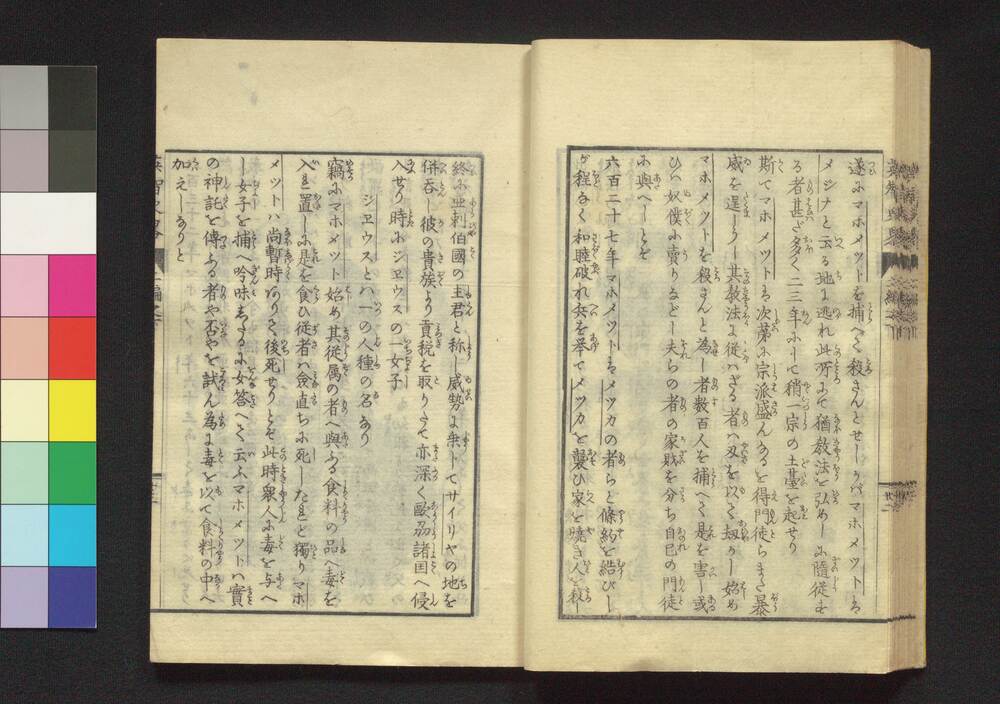 遂にマホメツトを捕へて殺さんとせしかバマホメツトは
メジナと云る地に逃れ此所にて猶教法を弘めしに隨従す
る者甚ざ多く二三年にして稍一宗の土臺を起せり
斯てマホメツトは次第に宗派盛んなるを得門徒らまた暴
威を逞しうし其教法に従ハざる者ハ刃を以て刼かし始め
マホメツトを殺さんと為し者数百人を捕へて是を害し或
ひハ奴僕に賣りなどし夫らの者の家財を分ち自己の門徒
に與へしとぞ
六百二十七年マホメツトはメツカの者らと條約を結びし
が程なく和睦破れ兵を挙てメツカを襲ひ家を燒き人を殺
終に亜剌伯國の主君と称し威勢に乗トてサイリヤの地を
併呑し彼の貴族より貢税を取りたて亦深く歐羽諸国へ侵
入せり時にジヱウスの一女子
ジヱウスとハ一の人種の名なり
竊にマホメツト始め其従属の者へ與ふる食料の品へ毒を
入れ置しに是を食ひ従者ハ僉直ちに死したれど獨りマホ
メツトハ尚暫時ありて後死せりとぞ此時衆人に毒を与へ
し女子を捕へ吟味せるに女答へて云ふマホメツトハ實
の神託を傳ふる者や否やを試ん為に毒を以て食料の中へ
加えしなりと